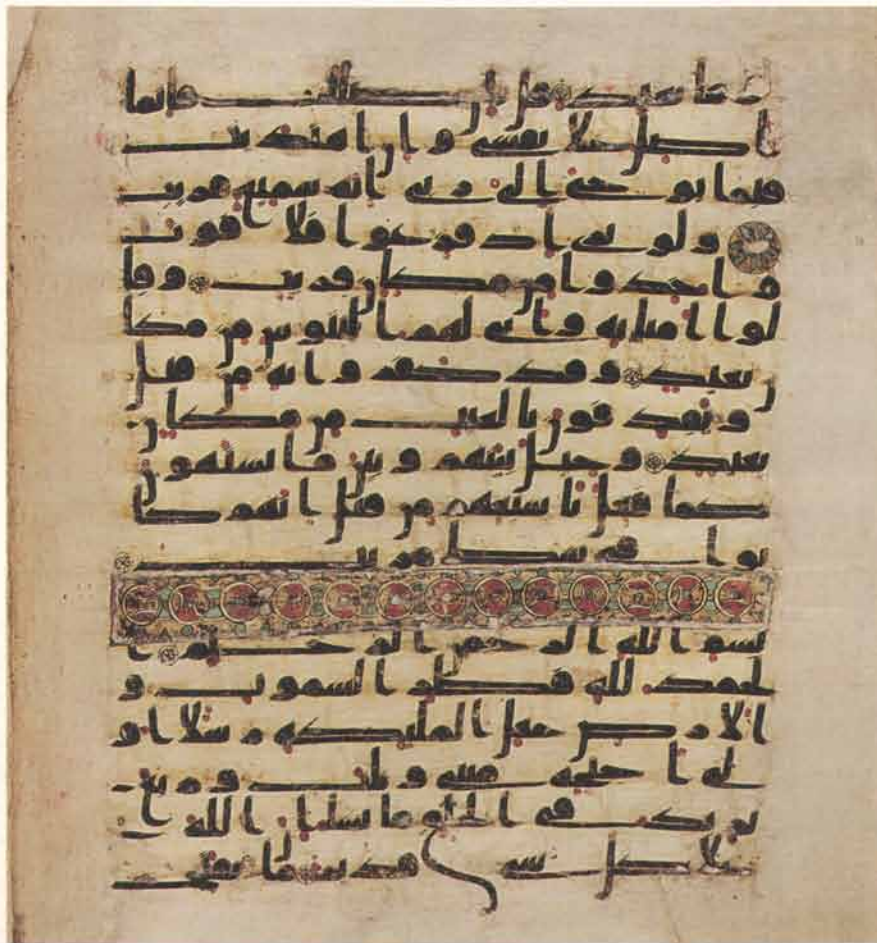 وما يعيد قل ان ضللت فانما
اضل على نفسى وان اهتديت
فبما يوحى الى ربى انه سميع قريب
ولو ترى اذ فزعوا فلا فوت
واخذوا من مكان قريب وقا
لوا امنا به وانى لهم التناوش من مكا
ن بعيد وقد كفروا به من قبل
ويقذفون بالغيب من مكان
بعيد وحيل بينهم وبين ما يشتهون
كما فعل باشيعهم من قبل انهم كا
نوا فى شك مريب
بسم الله الرحمن الرحيم ا
لحمد لله فطر السموت و
الارض جعل المليكة رسلا او
لى اجنحة مثنى وثلث وربع
يزيد فى الخلق ما يشا ان الله ع
لى كل شى قدير ما يفتح